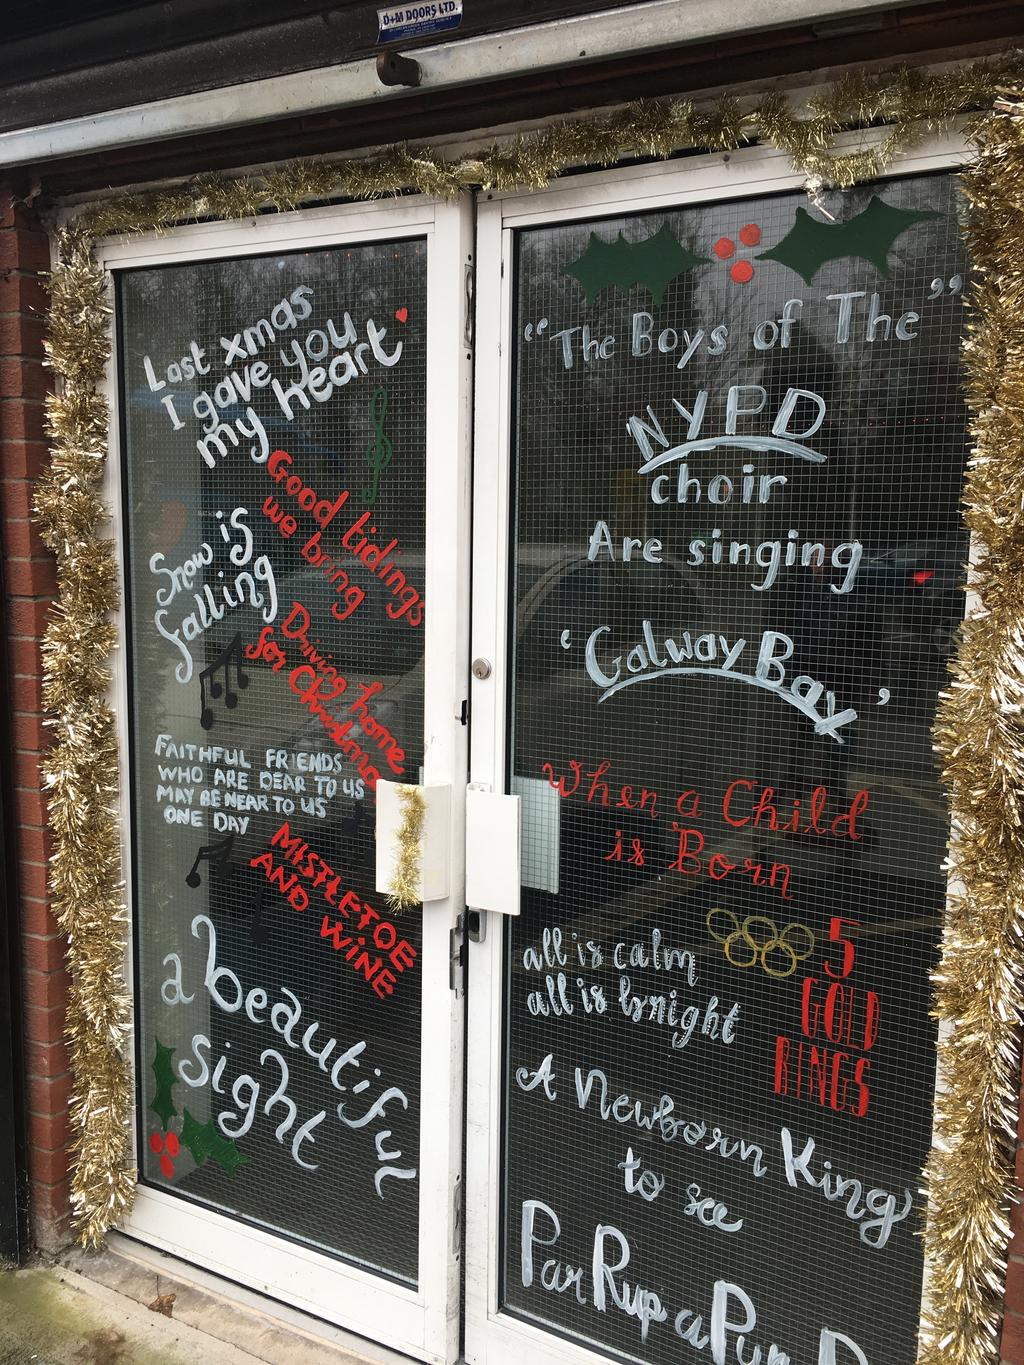 D+M DOORS LTD.
Last xmas
I gave you
my heart
Good tidings
we bring
Snow is
falling
Driving home
for Christmas
FAITHFUL FRIENDS
WHO ARE DEAR TO US
MAY BE NEAR TO US
ONE DAY
MISTLETOE
AND WINE
a beautiful
sight
"The Boys of The"
NYPD
choir
Are singing
'Galway Bay'
When a Child
is Born
all is calm
all is bright
5
GOLD
RINGS
A Newborn King
to see
Par Rup a Pum